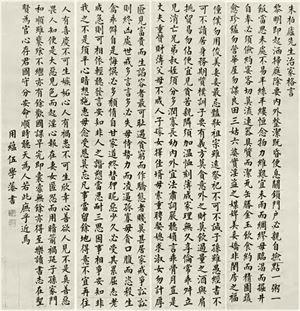 朱柏廬先生治家格言
黎明即起洒掃庭除要內外整潔既昏便息關鎖門戶必親自檢點一粥一
飯當思來處不易半絲半縷恆念物力維艱宜未雨而綢繆毋臨渴而掘井
自奉必須儉約宴客切勿留連器具質而潔瓦缶勝金玉飲食約而精園蔬
愈珍饈勿營華屋勿謀良田三姑六婆實淫盜之媒婢美妾嬌非閨房之福
僮僕勿用俊美妻妾最忌豔妝祖宗雖遠祭祀不可不誠子孫雖愚經書不
可不讀居身務期質樸訓子要有義方莫貪意外之財莫飲過量之酒與肩
挑貿易勿佔便宜見貧苦親鄰須加溫恤刻薄成家理無久享倫常乖舛立
見消亡兄弟叔姪須分多潤寡長幼內外宜法肅辭嚴聽婦言乖骨肉豈是
丈夫重資財薄父母不成人子嫁女擇佳婿毋索重聘娶媳求淑女勿計厚
奩見富貴而生諂容者最可恥遇貧窮而作驕態者賤莫甚居家戒爭訟訟
則終凶處世戒多言言多必失毋恃勢力而凌逼孤寡毋貪口腹而恣殺生
禽乖僻自是悔誤必多頹惰自甘家道終替狎昵惡少久必受其累屈志老
成急則可相依輕聽發言安知非人之譖愬當忍耐三思因事相爭安知非
我之不是須平心暗想施惠毋念受恩莫忘凡事當留餘地得意不宜再往
人有喜慶不可生妒嫉心人有禍患不可生欣幸心善欲人見不是真善惡
恐人知便是大惡見色而起淫心報在妻女匿怨而用暗箭禍延子孫家門
和順雖饔飧不繼亦有餘歡國課早完即囊橐無餘自得至樂讀書志在聖
賢為官心存君國守分安命順時聽天為人若此庶乎近焉
伍學書